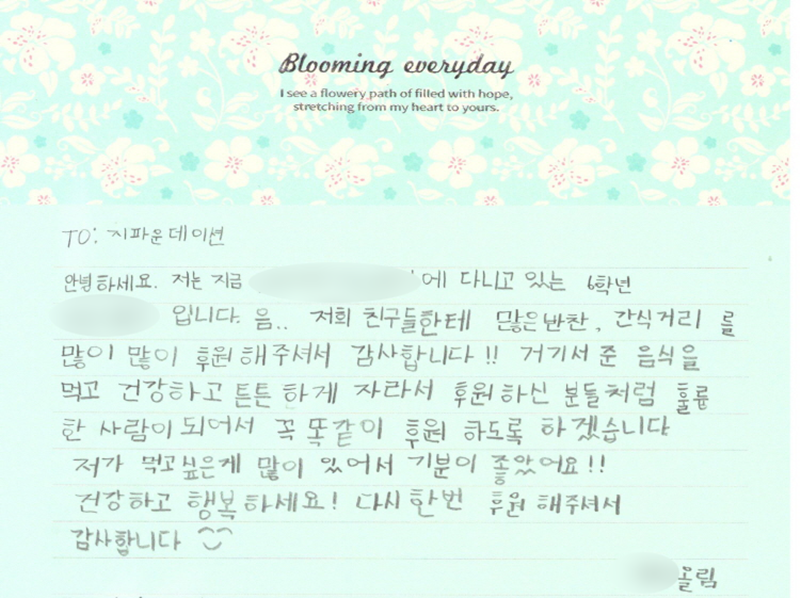 Blooming everyday
I see a flowery path of filled with hope,
stretching from my heart to yours.
TO: 지파운데이션
안녕하세요. 저는 지금 에 다니고 있는 6학년
입니다. 음.. 저희 친구들한테 많은반찬, 간식거리 를
많이 많이 후원해주셔서 감사합니다!! 거기서 준 음식을
먹고 건강하고 튼튼하게 자라서 후원하신 분들처럼 훌륭
한 사람이 되어서 꼭 똑같이 후원 하도록 하겠습니다
저가 먹고싶은게 많이 있어서 기분이 좋았어요!!
건강하고 행복하세요! 다시한번 후원 해주셔서
감사합니다
올림